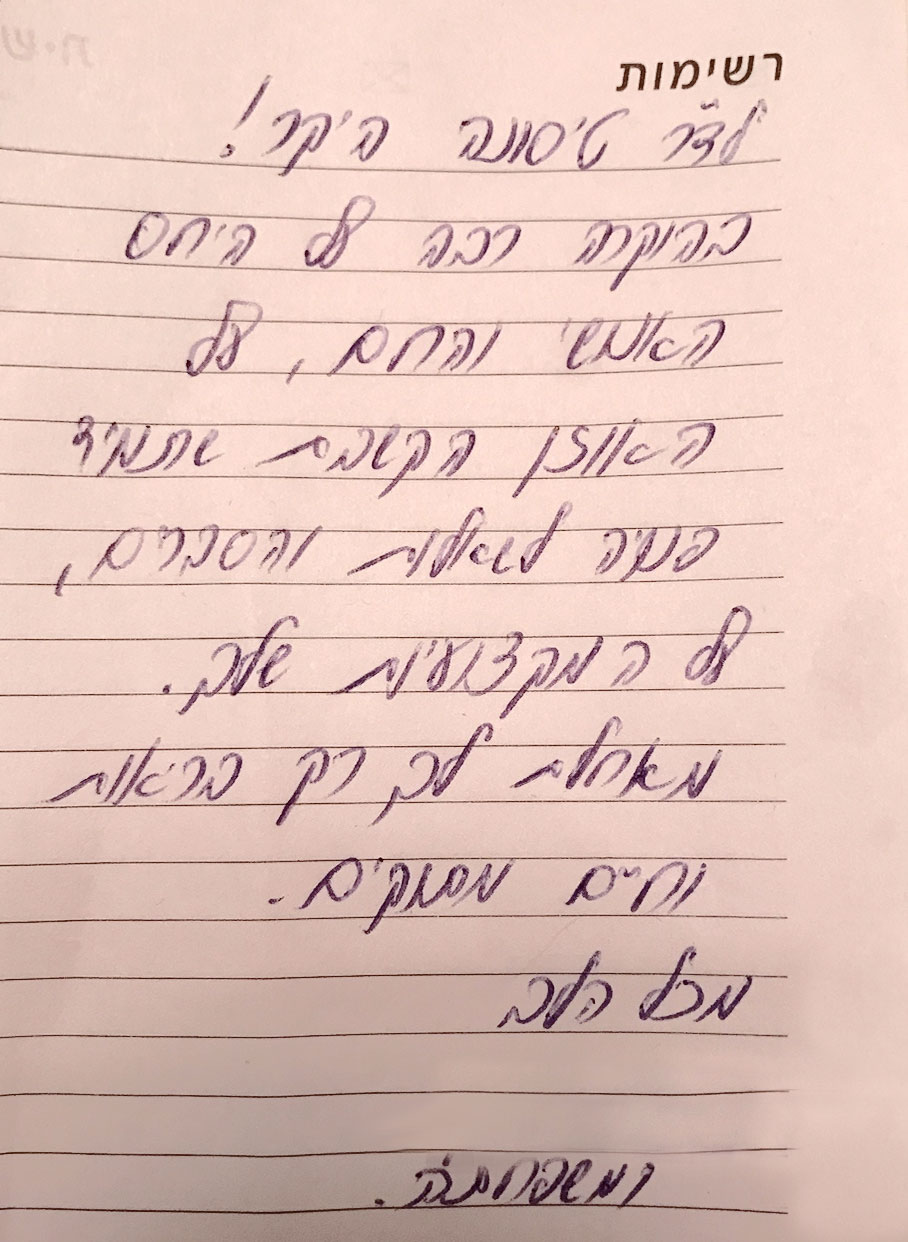 רשימות
לד״ר טיסונה היקר!
בהוקרה רבה על היחס
האנושי והחם, על
האוזן הקשבת שתמיד
פנויה לשאלות והסברים,
על המקצועיות שלך.
מאחלת לך רק בריאות
וחיים מתוקים.
מכל הלב
ומשפחתה.